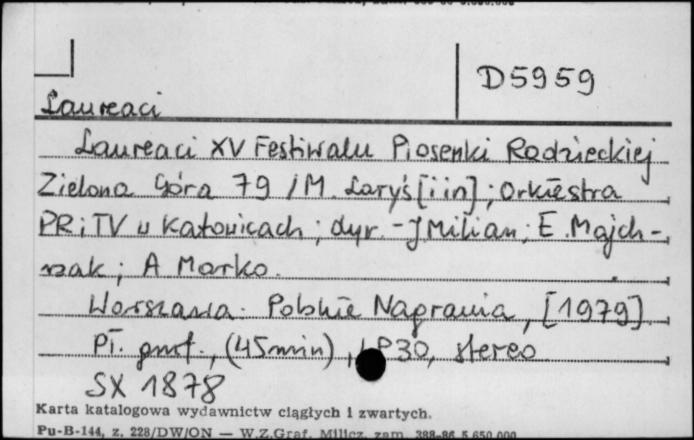 D5959
Laureaci
Laureaci XV Festiwalu Piosenki Radzieckiej
Zielona Góra 79 / M. Laryś [i in]; Orkiestra
PR i TV w Katowicach; dyr. - J Milian; E. Majch-
rzak; A Marko.
Warszawa. Polskie Nagrania, [1979]
Pł. gmf., (45min), LP30, stereo
SX 1878
Karta katalogowa wydawnictw ciągłych i zwartych.
Pu-B-144, z. 228/DW/ON — W.Z.Graf. Milicz, zam. 388-86 5.650.000